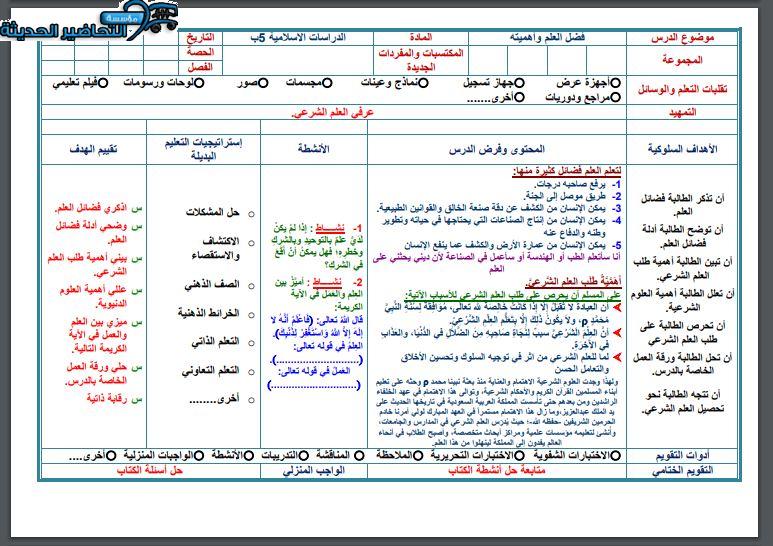 مؤسسة
التحاضير الحديثة
موضوع الدرس
فضل العلم وأهميته
المادة
الدراسات الاسلامية 5ب
التاريخ
المجموعة
المكتسبات والمفردات الجديدة
الحصة
الفصل
تقنيات التعلم والوسائل
أجهزة عرض
جهاز تسجيل
نماذج وعينات
مجسمات
صور
لوحات ورسومات
فيلم تعليمي
مراجع ودوريات
أخرى.......
التمهيد
عرفي العلم الشرعي.
الأهداف السلوكية
المحتوى وفرض الدرس
الأنشطة
إستراتيجيات التعليم البديلة
تقييم الهدف
أن تذكر الطالبة فضائل
العلم.
أن توضح الطالبة أدلة
فضائل العلم.
أن تبين الطالبة أهمية طلب
العلم الشرعي.
أن تعلل الطالبة أهمية العلوم
الشرعية.
أن تحرص الطالبة على
طلب العلم الشرعي
أن تحل الطالبة ورقة العمل
الخاصة بالدرس.
أن تتجه الطالبة نحو
تحصيل العلم الشرعي.
لتعلم العلم فضائل كثيرة منها:
1- يرفع صاحبه درجات.
2- طريق موصل إلى الجنة.
3- يمكن الإنسان من الكشف عن دقة صنعة الخالق والقوانين الطبيعية.
4- يمكن الإنسان من إنتاج الصناعات التي يحتاجها في حياته وتطوير
وطنه والدفاع عنه
5- يمكن الإنسان من عمارة الأرض والكشف عما ينفع الإنسان
أنا سأتعلم الطب أو الهندسة أو سأعمل في الصناعة لأن ديني يحثني على
العلم
أهَمِّيَّةُ طَلَبِ العلمِ الشَّرْعيِّ.
على المسلم أن يحرص على طلب العلم الشرعي للأسباب الآتية:
أن العبادة لا تُقبَلُ إلا إذا كانَتْ خالصةً لله تعالى، مُوافقةً لسُنَّة النَّبِيِّ
مُحمَّدٍ ρ، ولا يكونُ ذلك إلَّا بتَعلُّمِ العلمِ الشَّرْعيِّ.
أنَّ العِلمَ الشَّرْعيَّ سببٌ لنَجاةِ صاحِبِه مِن الضَّلالِ في الدُّنْيا، والعذاب
في الآخرة.
لما للعلم الشرعي من أثر في توجيه السلوك وتحسين الأخلاق
والتعامل الحسن
ولهذا وجدت العلوم الشرعية الاهتمام والعناية منذ بعثة نبينا محمد ρ وحثه على تعليم
أبناء المسلمين القرآن الكريم والأحكام الشرعية، وتوالى هذا الاهتمام في عهد الخلفاء
الراشدين ومن بعدهم حتى تأسست المملكة العربية السعودية في تاريخها الحديث على
يد الملك عبدالعزيز، وما زال هذا الاهتمام مستمراً في العهد المبارك لولي أمرنا خادم
الحرمين الشريفين -حفظه الله-؛ حيث يُدرس العلم الشرعي في المدارس والجامعات،
وأنشئ لتعليمه مؤسسات علمية ومراكز أبحاث متخصصة، وأصبح الطلاب في أنحاء
العالم يفدون إلى المملكة لينهلوا من هذا العلم.
1- نشــــاط : إذا لمْ يكنْ
لديَّ علمٌ بالتوحيدِ وبالشركِ
وخطره؛ فهل يمكنُ أنْ أقعَ
في الشرك؟
2- نشــــاط : أميِّزُ بين
العلمِ والعمل في الآية
الكريمة:
قال الله تعالى: (فَاعْلَمْ أَنَّهُ لَا
إِلَهَ إِلَّا اللَّهُ وَاسْتَغْفِرْ لِذَنْبِكَ).
العِلمُ في قوله تعالى:
(....................).
العملُ في قوله تعالى:
(....................)
حل المشكلات
الاكتشاف
والاستقصاء
الصف الذهني
الخرائط الذهنية
التعلم الذاتي
التعلم التعاوني
أخرى........
س اذكري فضائل العلم.
س وضحي أدلة فضائل
العلم.
س بيني أهمية طلب العلم
الشرعي.
س عللي أهمية العلوم
الدنيوية.
س ميزي بين العلم
والعمل في الآية
الكريمة التالية.
س حلي ورقة العمل
الخاصة بالدرس.
س رقابة ذاتية
أدوات التقويم
الاختبارات الشفوية
الاختبارات التحريرية
الملاحظة
المناقشة
التدريبات
الأنشطة
الواجبات المنزلية
أخرى....
التقويم الختامي
متابعة حل أنشطة الكتاب
الواجب المنزلي
حل أسئلة الكتاب